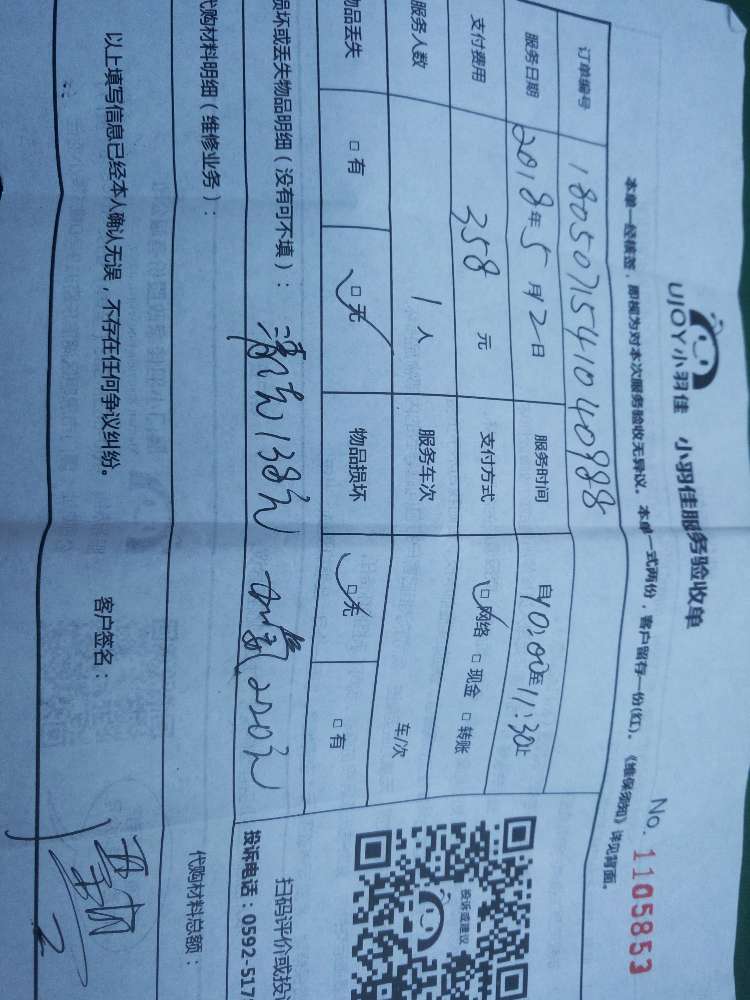 UJOY小羽佳 小羽佳服务验收单
No. 1105853
本单一经核签，即视为对本次服务验收无异议。本单一式两份，客户留存一份(红)。《维保须知》详见背面。
订单编号 180507154104098 8
服务日期 2018年5月2日 服务时间 自10:00至11:30止
支付费用 358 元 支付方式 网络 现金 转账
服务人数 1人 服务车次 车/次
物品丢失 有 无 物品损坏 无 有
损坏或丢失物品明细（没有可不填）： 清洗138元 加氟220元
代购材料明细（维修业务）： 代购材料总额：
以上填写信息已经本人确认无误，不存在任何争议纠纷。 客户签名：
投诉或建议
扫码评价或投
投诉电话：0592-517